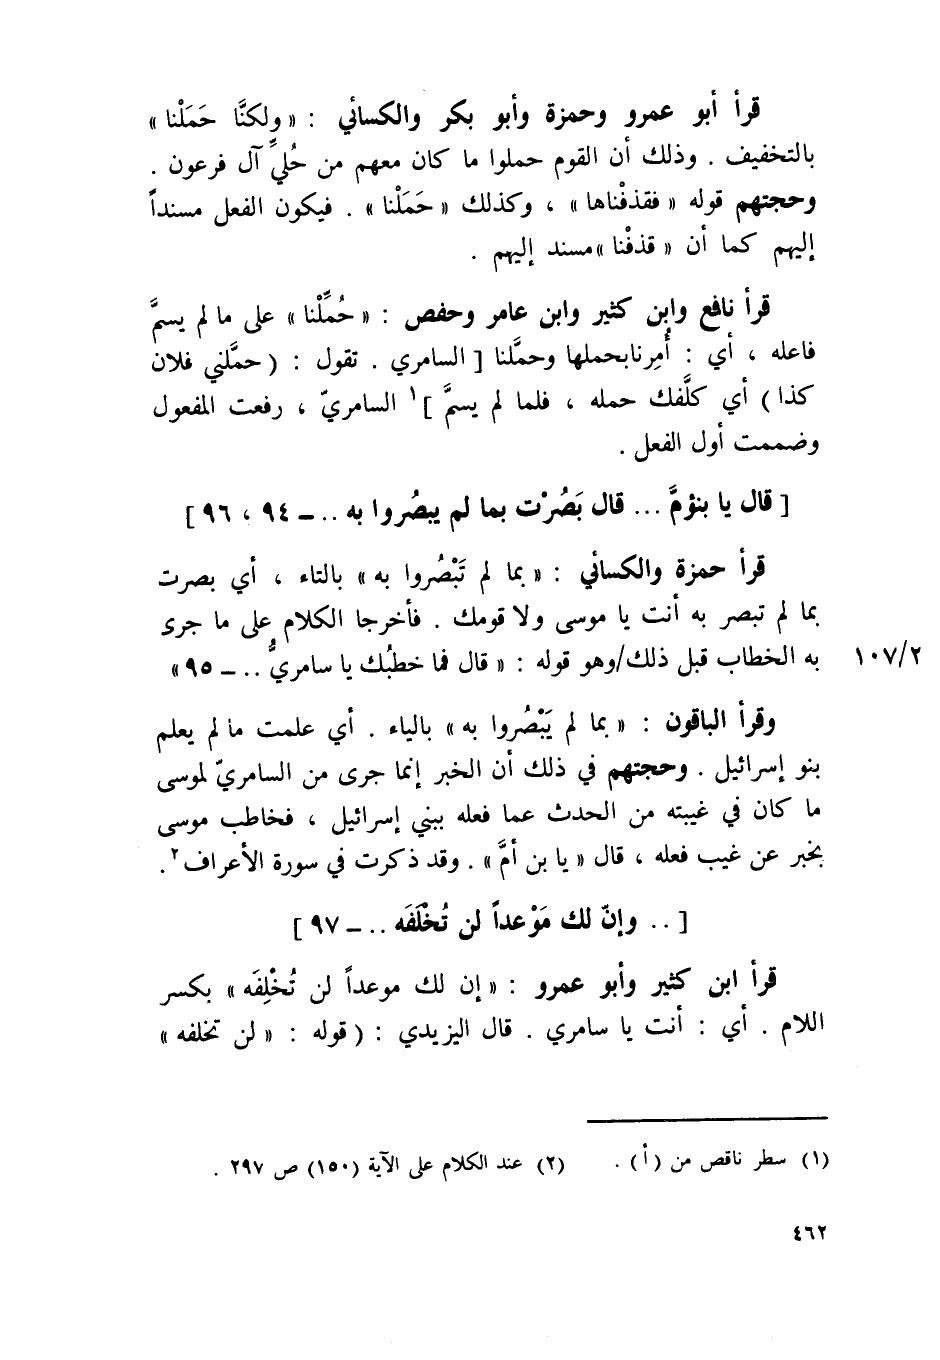 قرأ أبو عمرو وحمزة وأبو بكر والكسائي : « ولكنَّا حَمَلْنا »
بالتخفيف . وذلك أن القوم حملوا ما كان معهم من حُليِّ آل فرعون .
وحجتهم قوله « فقذفْناها » ، وكذلك « حَمَلْنا » . فيكون الفعل مسنداً
إليهم كما أن « قذفْنا » مسند إليهم .
قرأ نافع وابن كثير وابن عامر وحفص : « حُمِّلْنا » على ما لم يسمَّ
فاعله ، أي : أُمِرنا بحملها وحمَّلنا [ السامري . تقول : ( حمَّلني فلان
كذا ) أي كلَّفك حمله ، فلما لم يسمَّ ]١ السامريّ ، رفعت المفعول
وضممت أول الفعل .
[ قال يا بنؤمَّ ... قال بَصُرْت بما لم يبصُروا به .. ــ ٩٤ ، ٩٦ ]
قرأ حمزة والكسائي : « بما لم تَبْصُروا به » بالتاء ، أي بصرت
بما لم تبصر به أنت يا موسى ولا قومك . فأخرجا الكلام على ما جرى
به الخطاب قبل ذلك/وهو قوله : « قال فما خطبُك يا سامريُّ .. ــ ٩٥ » ١٠٧/٢
وقرأ الباقون : « بما لم يَبْصُروا به » بالياء . أي علمت ما لم يعلم
بنو إسرائيل . وحجتهم في ذلك أن الخبر إنما جرى من السامريّ لموسى
ما كان في غيبته من الحدث عما فعله ببني إسرائيل ، فخاطب موسى
بخبر عن غيب فعله ، قال « يا بن أمَّ » . وقد ذكرت في سورة الأعراف٢ .
[ .. وإنّ لك مَوْعداً لن تُخْلَفَه .. ــ ٩٧ ]
قرأ ابن كثير وأبو عمرو : « إن لك موعداً لن تُخْلِفَه » بكسر
اللام . أي : أنت يا سامري . قال اليزيدي : ( قوله : « لن تخلفه »
(١) سطر ناقص من ( أ ) . (٢) عند الكلام على الآية (١٥٠) ص ٢٩٧ .
٤٦٢